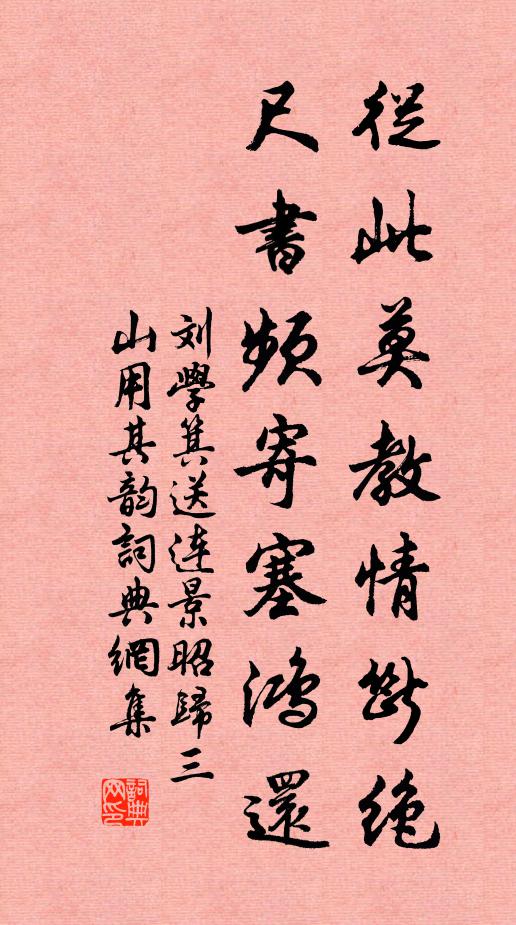 從此莫教情斷絶
尺書頻寄塞鴻還
刘學箕送連景昭歸三
山用其韵詞典網集
詞典网印